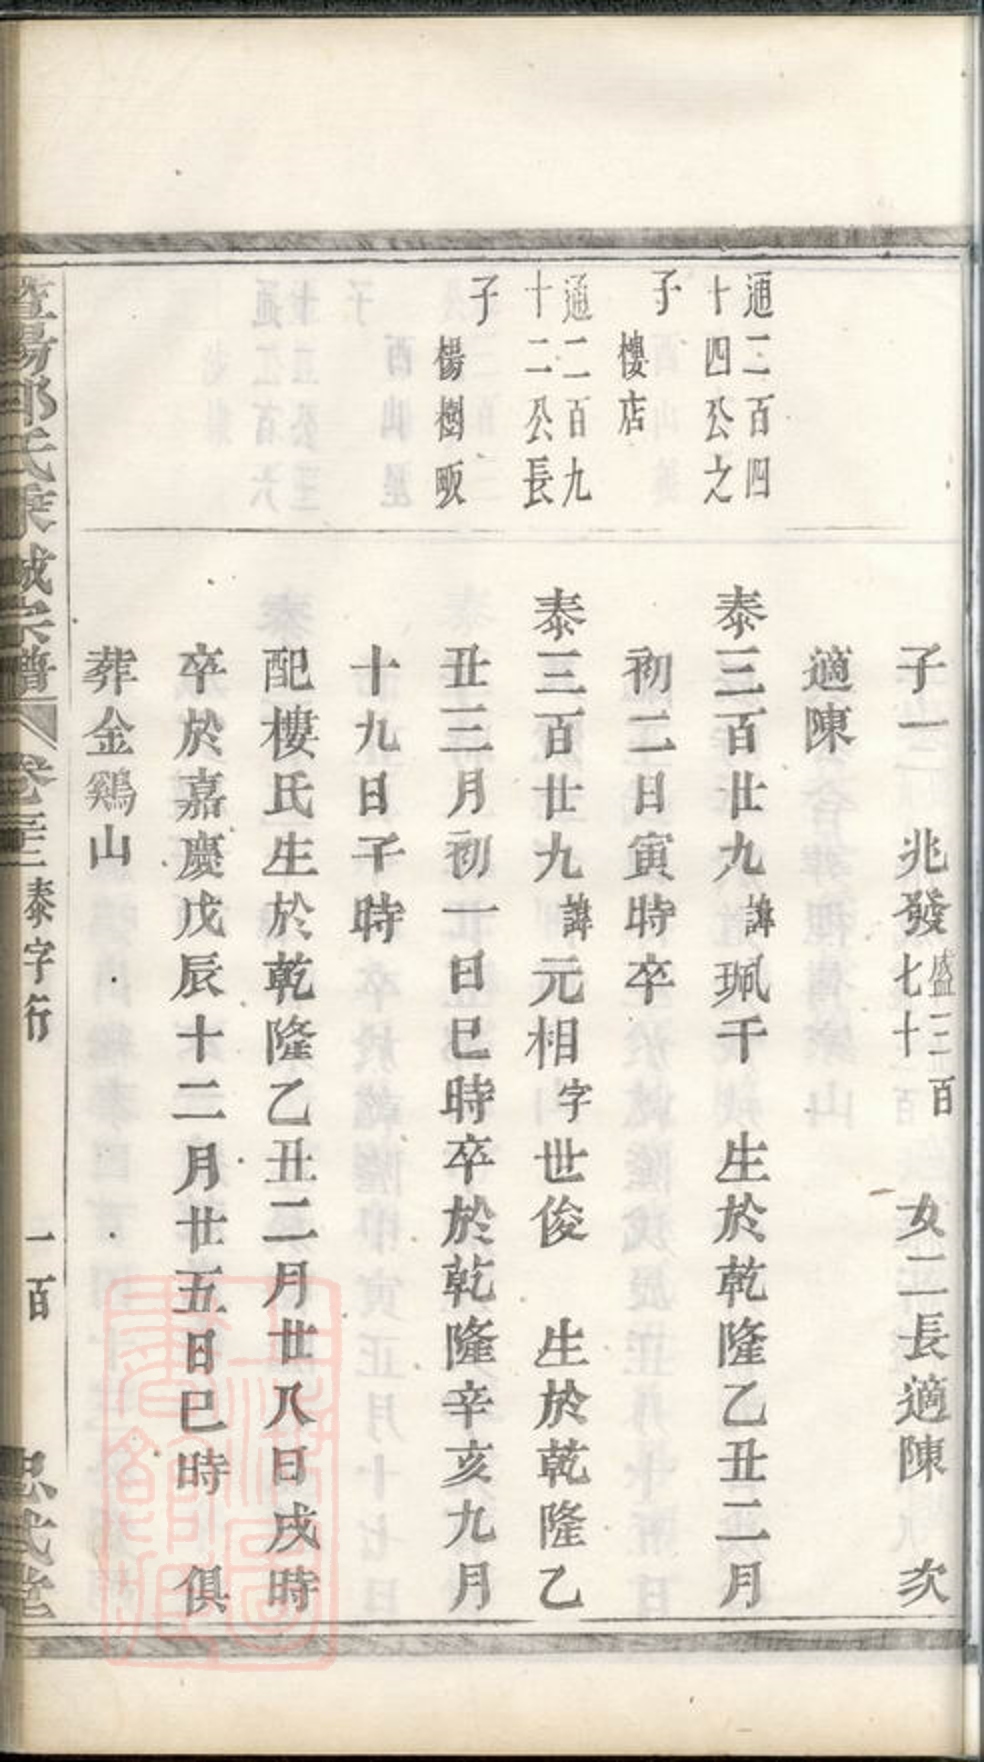 子一 兆發盛三百七十 女二長適陳 次
適陳
通二百四十四公之子 樓店
泰三百廿九諱珮干 生於乾隆乙丑二月
初二日寅時卒
通二百九十二公長子 楊樹畈
泰三百廿九諱元相字世俊 生於乾隆乙
丑三月初一日巳時卒於乾隆辛亥九月
十九日子時
配樓氏生於乾隆乙丑二月廿八日戌時
卒於嘉慶戊辰十二月廿五日巳時 俱
葬金鷄山
暨陽邵氏宗譜 卷 泰字行 一百 忠武堂